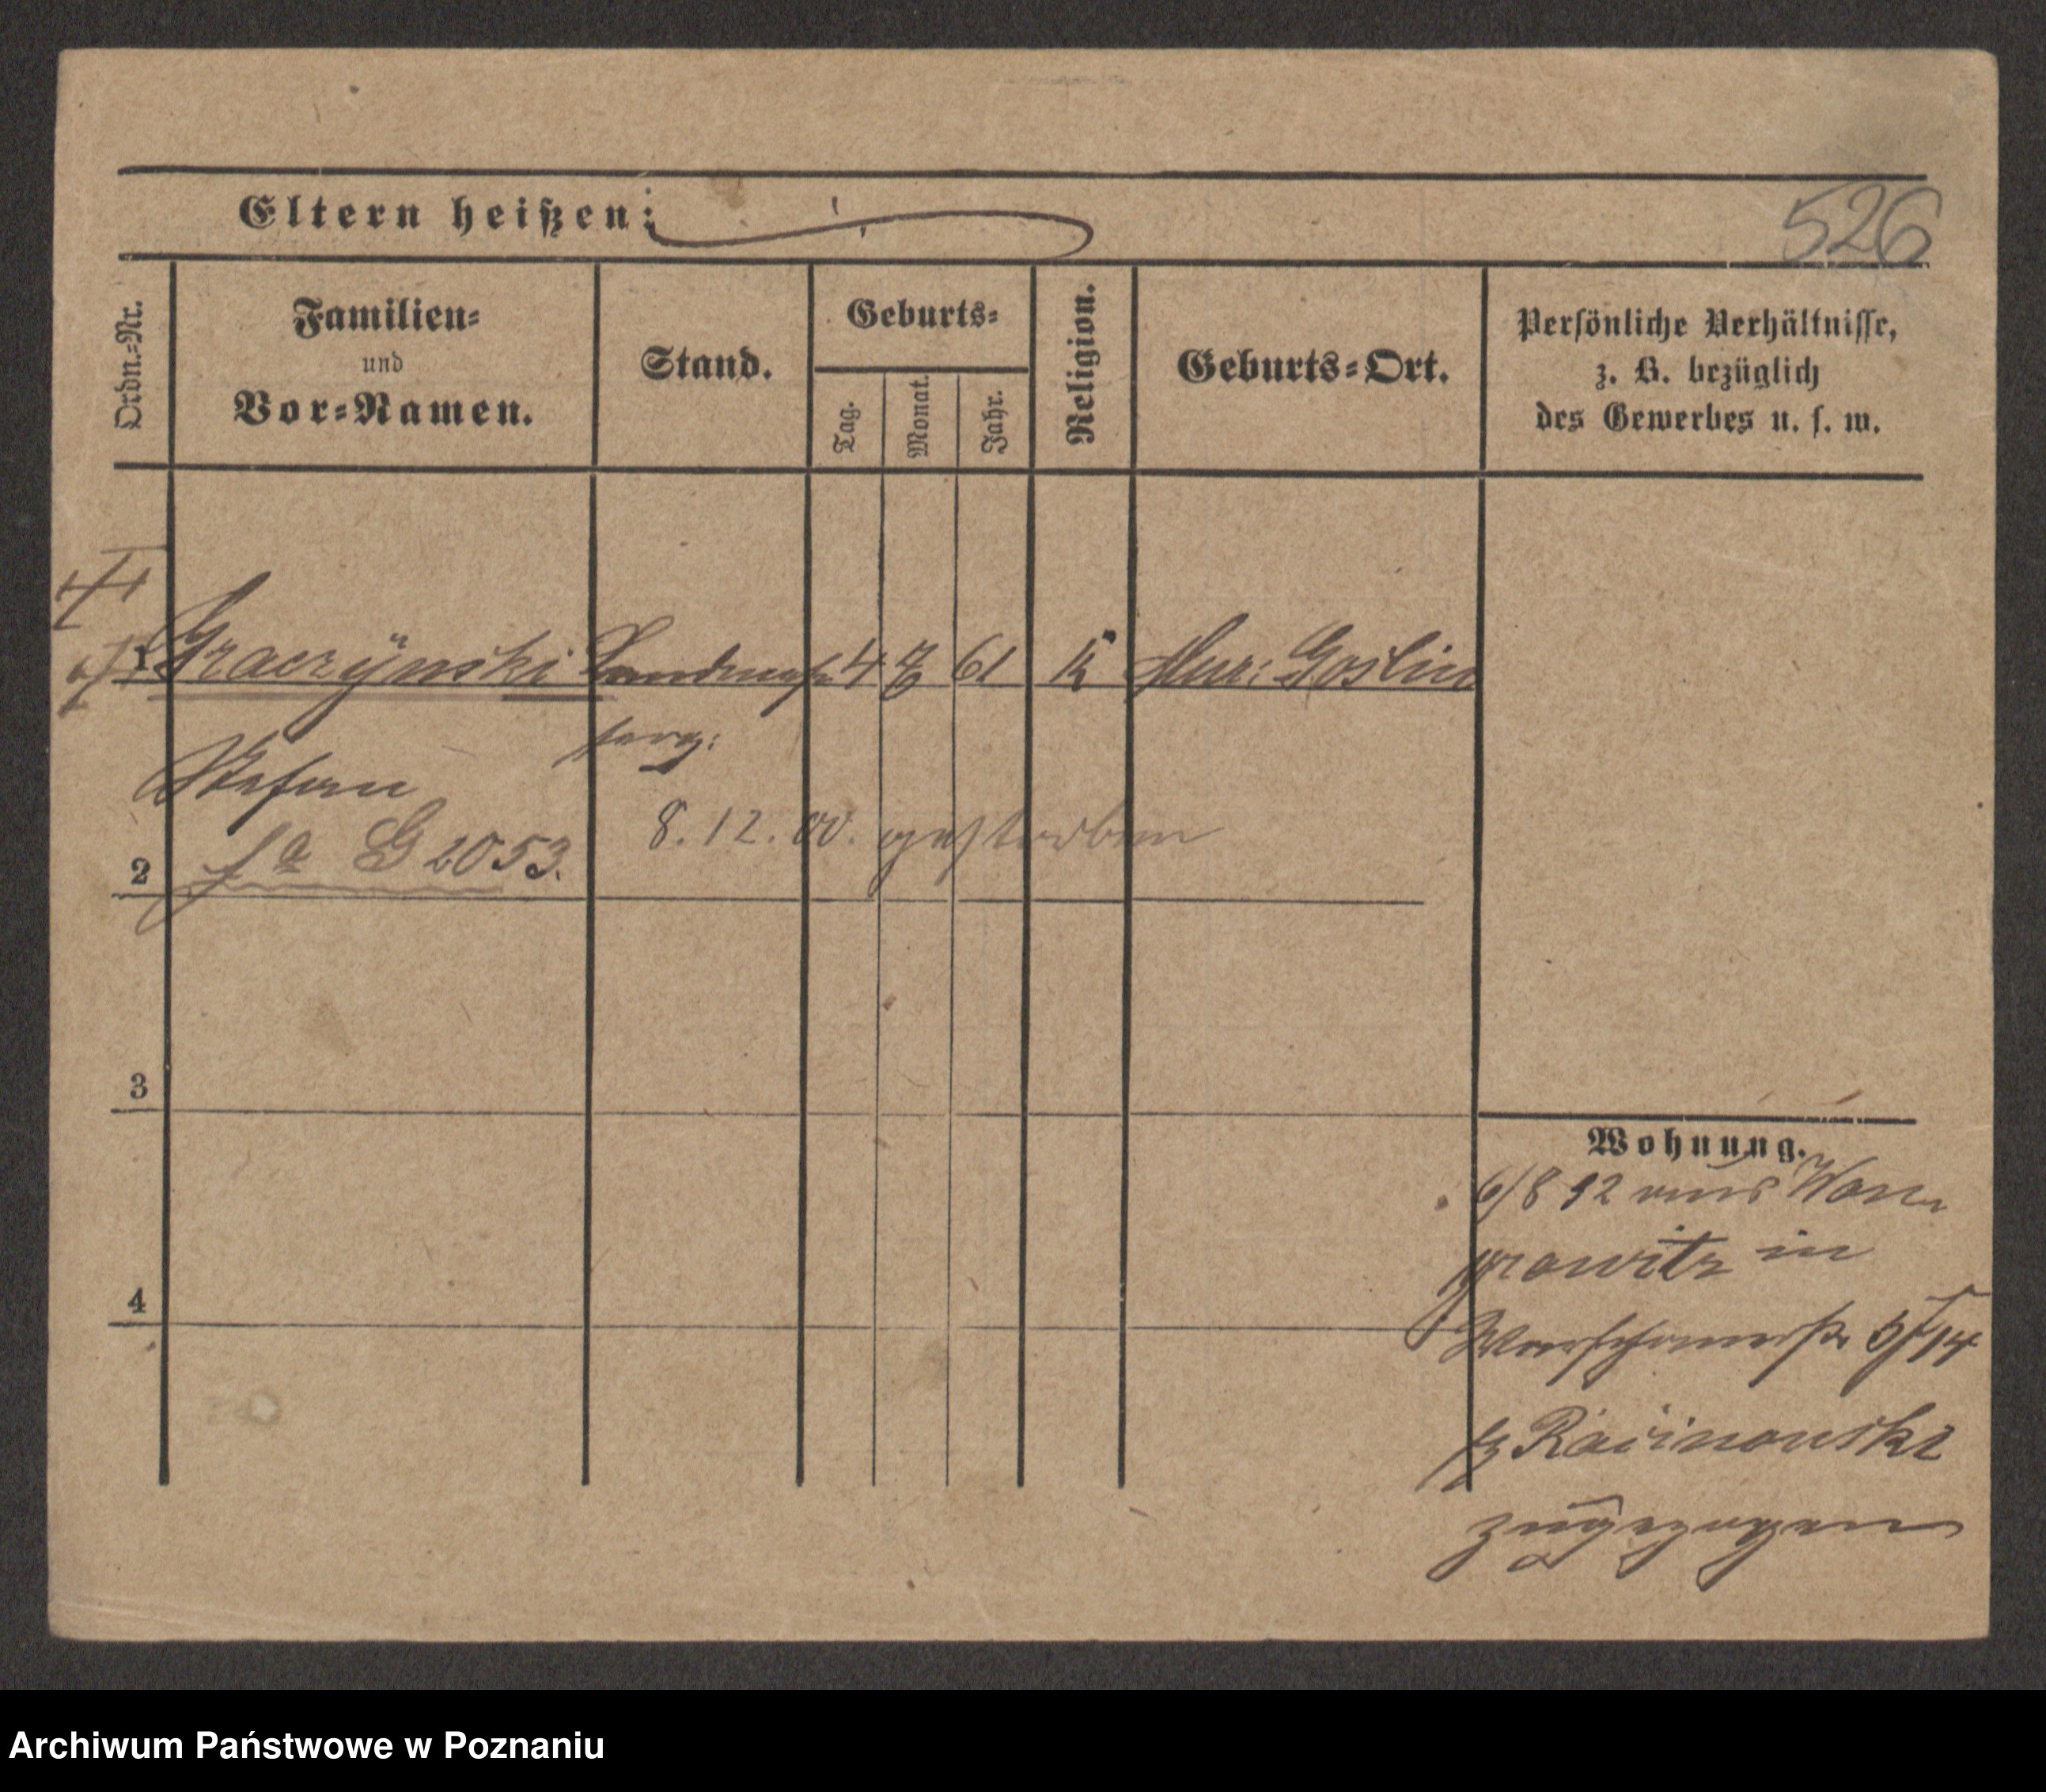 526
Eltern heißen:
Ordn.-Nr.
Familien-
und
Vor-Namen.
Stand.
Geburts-
Tag.
Monat.
Jahr.
Religion.
Geburts-Ort.
Persönliche Verhältnisse,
z. B. bezüglich
des Gewerbes u. s. w.
1 Graczÿnski 4 7 61 K Mur: Goslin
Stefan
G 2053.
8. 12. 00. gestorben
2
3
4
Wohnung.
6/8 92 aus Won
growitz in
Warschauerstr 5/14
Racinowski
zugezogen
Archiwum Państwowe w Poznaniu